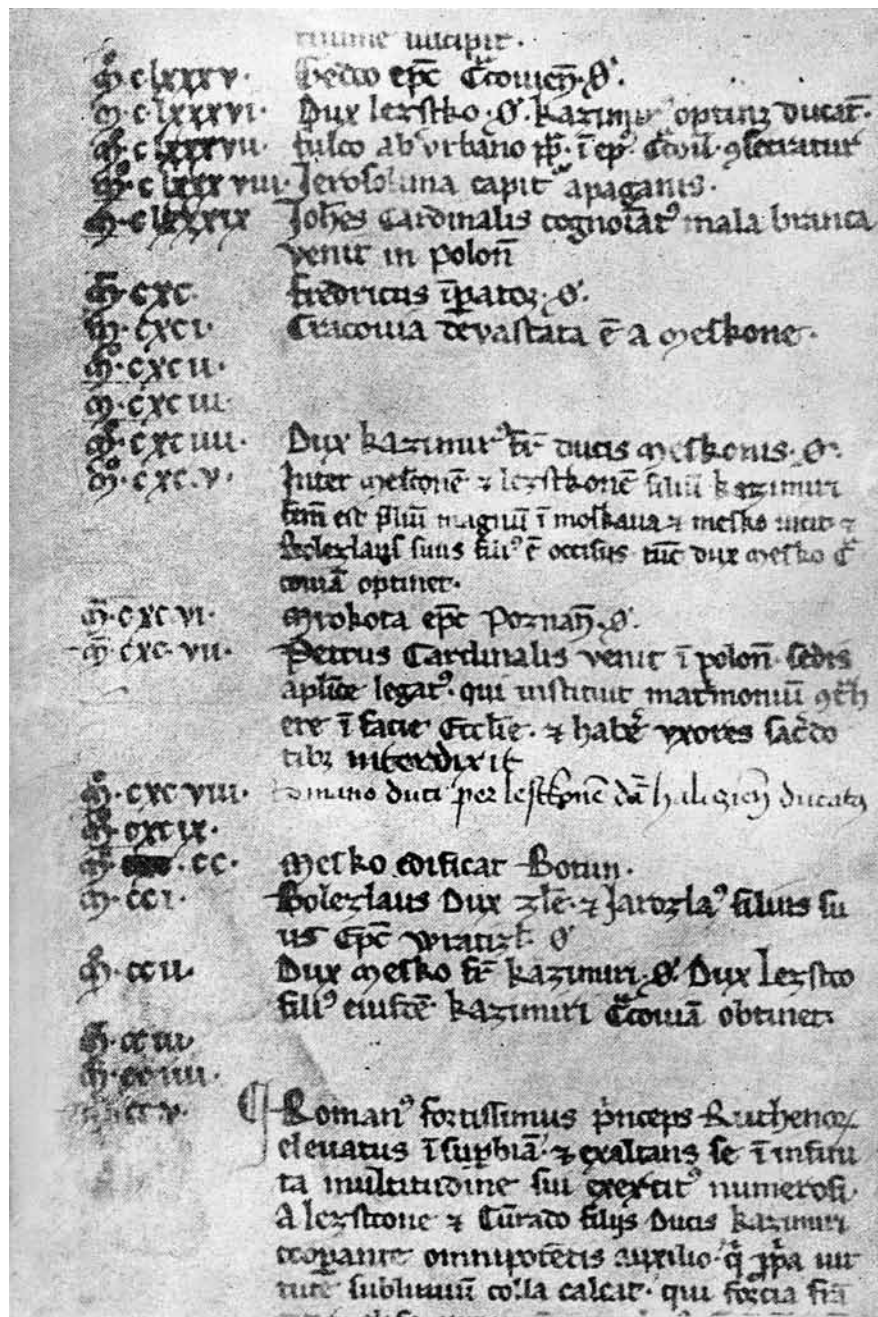 incipit.
M. c lxxxv. Gedco epc Cͣcouień. O.
M. c lxxxvi. Dux lezstko. O. kazimir' optinȝ ducat.
M. c lxxxvii. fulco ab vrbano pp. ī ep. 9secratur
M. c lxxxviii. Jerosolima capit' apaganis.
M. c lxxxix Joh̄es Cardinalis cognoīat' mala branca
venit in polon̄
M. cxc. fredricus īpator. O.
M. cxci. Cracouia devastata ē a meskone.
M. cxcii.
M. cxciii.
M. cxciiii. Dux kazimir' fr̄ ducis meskonis. O.
M. cxc.v. Inter mesconē ⁊ lezstkonē filiū kazimiri
est magnū ī moskaua ⁊ mesko uicit ⁊
Bolezlaus suus fili' ē occisus tūc dux mesko Cͣ
couiā optinet.
M. cxc vi. Mrokota epc Poznan̄. O.
M. cxc. vii. Petrus Cardinalis venit ī polon̄ sedis
aplice legat'. qui instituit mat'moniū 9tͣh
ere ī facie Ecclie. ⁊ habē uxores sac̄do
tibȝ interdixit
M. cxc viii. romano duci per lestkonē dā haliciēn ducatꝫ
M. cxcix.
M. cc. Mesko edificat Botun.
M. cci. Bolezlaus Dux zlē. ⁊ Jarozla' filius su
us Epc wratizł. O
M. ccii. Dux mesko fr̄ kazimiri. O. Dux lezstco
fili' eiusdē kazimiri Cͣcouiā obtinet.
M. cciii.
M. cciiii.
M. cc v. Roman' fortissimus p'nceps Ruthenoꝝ
elevatus ī supbiā. ⁊ exaltans se ī infini
ta multitudine sui exercit' numerosi.
A lezstcone ⁊ Cūrado filijs Ducis kazimiri
coopante omnipotētis auxilio. q' ppa uir
tute sublimiū colla calcat. qui forcia